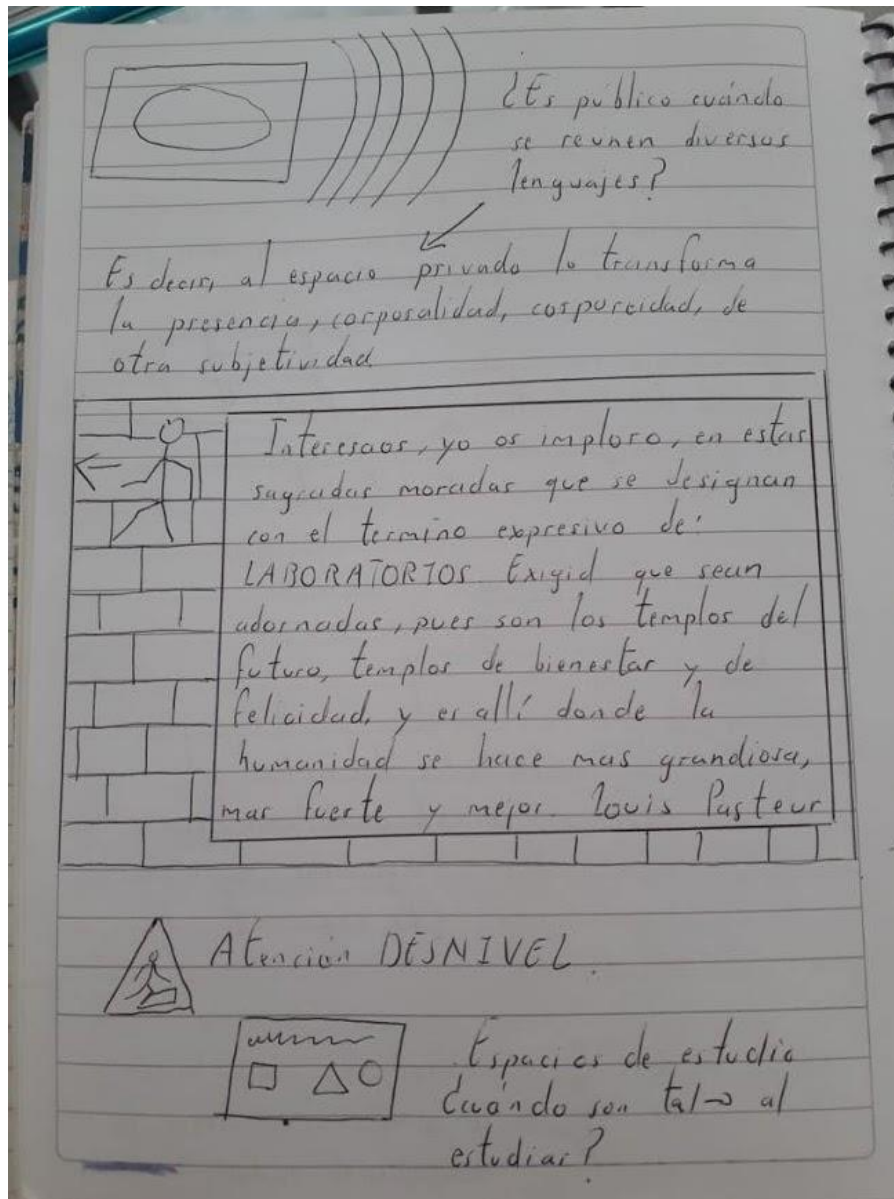 ¿Es público cuándo
se reunen diversos
lenguajes?
Es decir, al espacio privado lo transforma
la presencia, corporalidad, corporeidad, de
otra subjetividad
Interesaos, yo os imploro, en estas
sagradas moradas que se designan
con el termino expresivo de:
LABORATORIOS Exigid que sean
adornadas, pues son los templos del
futuro, templos de bienestar y de
felicidad, y es allí donde la
humanidad se hace mas grandiosa,
mas fuerte y mejor. Louis Pasteur
Atención DESNIVEL
Espacios de estudio
¿cuándo son tal → al
estudiar?